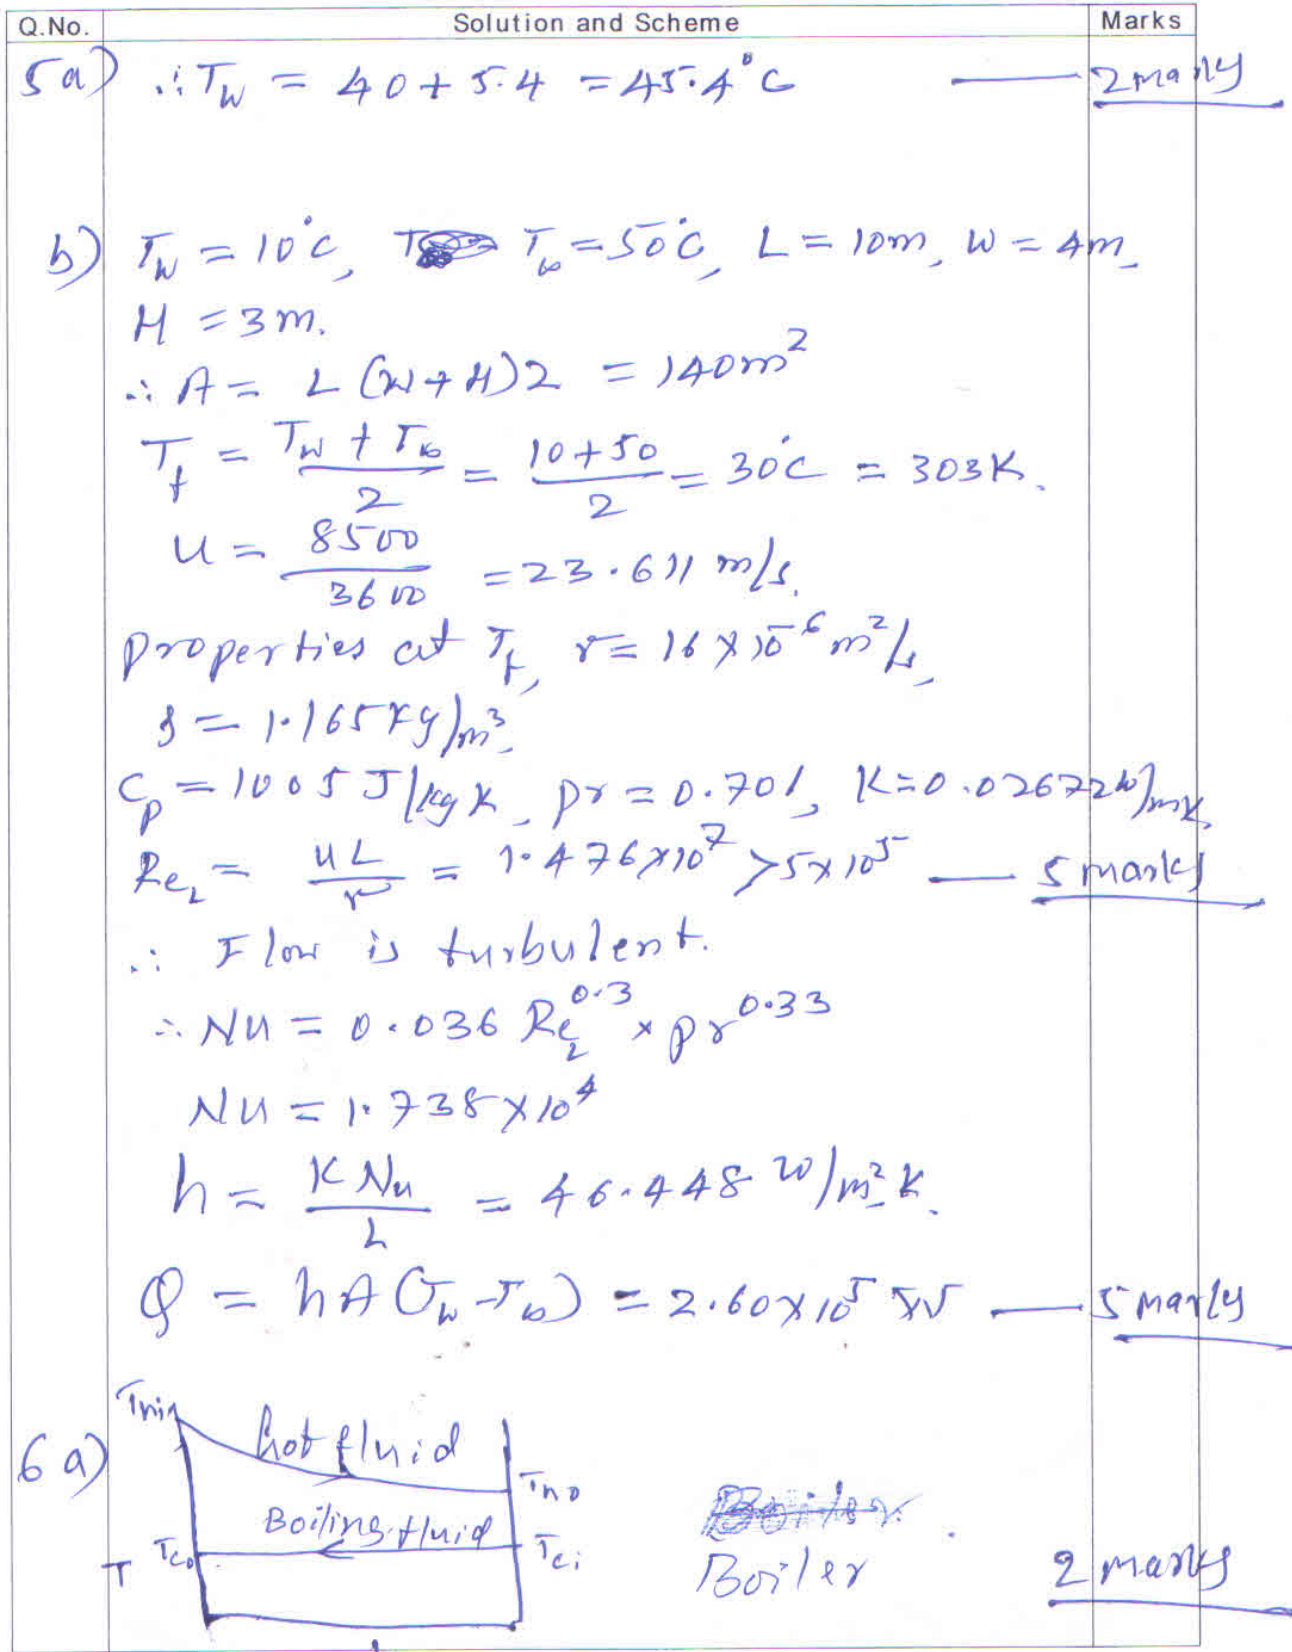 Q.No. Solution and Scheme Marks
5a) ∴ T_w = 40 + 5.4 = 45.4°C — 2 marks
b) T_w = 10°C, T_∞ = 50°C, L = 10m, W = 4m,
H = 3m.
∴ A = L (W+H)2 = 140m²
T_f = (T_w + T_∞)/2 = (10+50)/2 = 30°C = 303K.
u = 8500/3600 = 23.611 m/s.
properties at T_f, γ = 16 × 10⁻⁶ m²/s,
ρ = 1.165 kg/m³,
C_p = 1005 J/kg K, pr = 0.701, K = 0.02672 w/mK,
Re_L = uL/γ = 1.476×10⁷ > 5×10⁵ — 5 marks
∴ Flow is turbulent.
∴ Nu = 0.036 Re_L^0.3 × pr^0.33
Nu = 1.738×10⁴
h = K Nu/L = 46.448 w/m² K.
Q = hA(T_w - T_∞) = 2.60×10⁵ — 5 marks
6a) T_hin hot fluid T_ho
Boiling fluid
T T_co T_ci
Boiler 2 marks